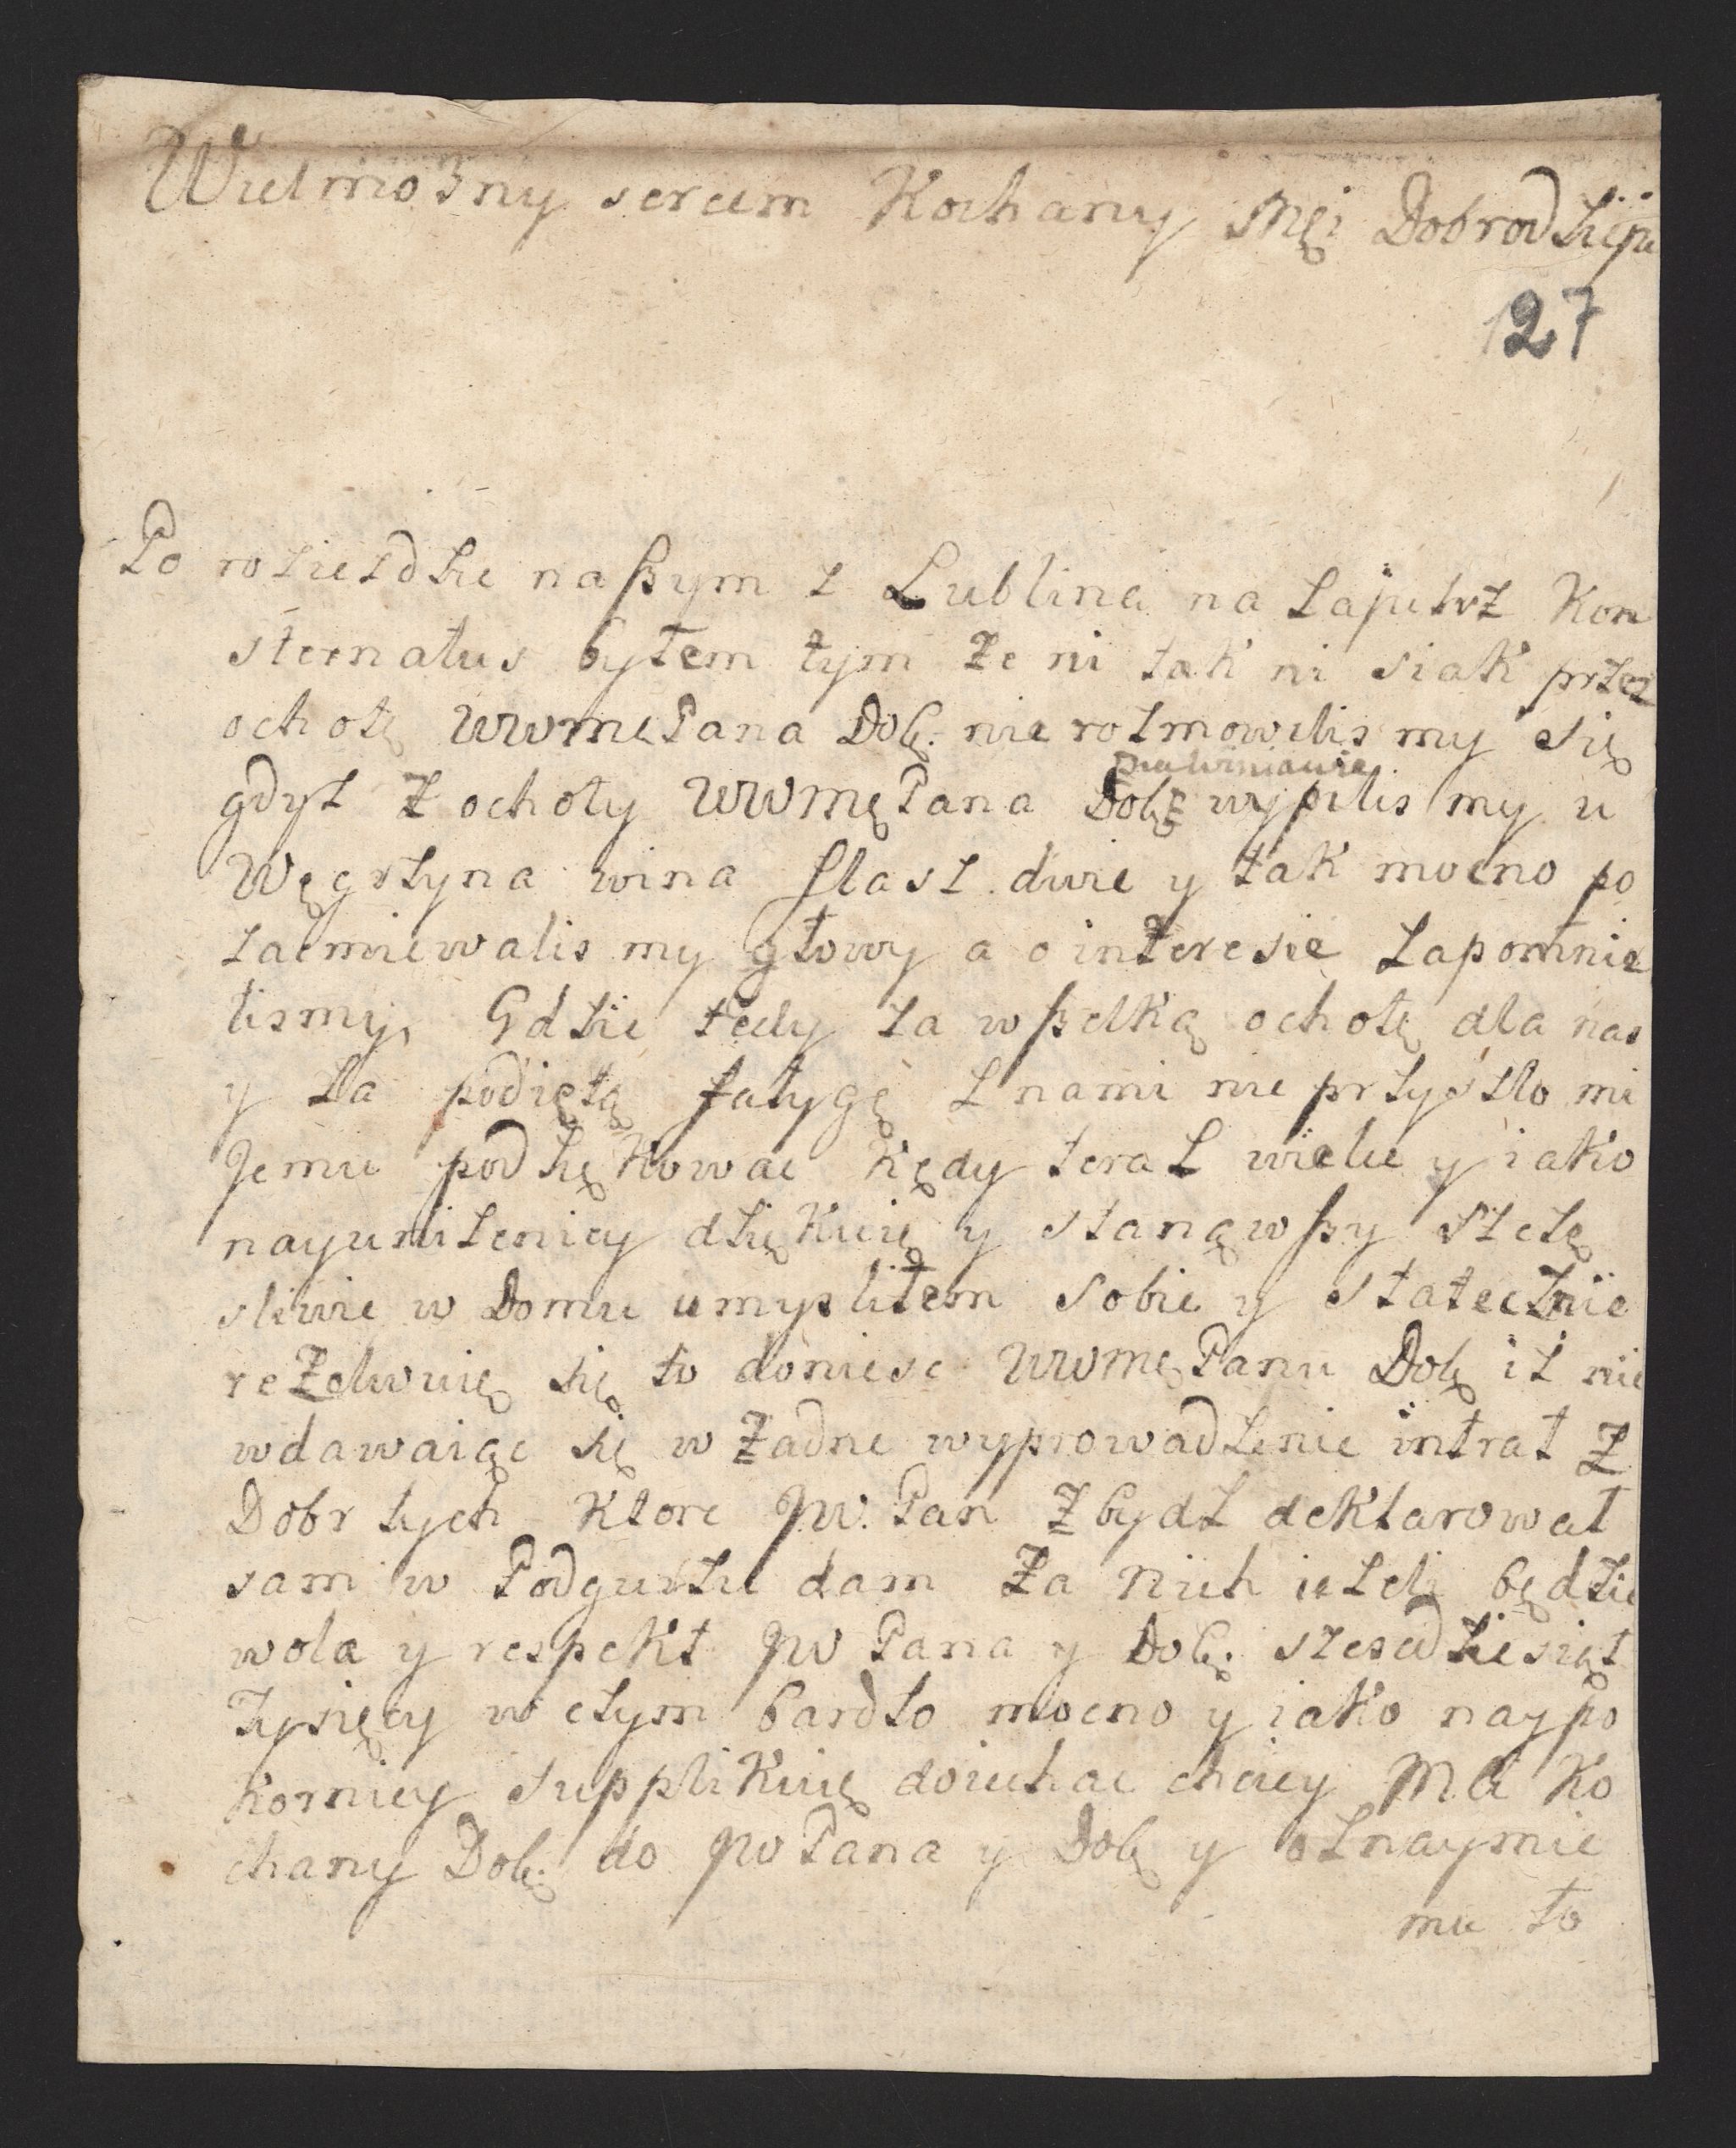 Wielmozny sercem Kochany Męi Dobrodzieju
127
Po rozieździe naszym z Lublina na zajutrz Kon
sternatus byłem tym ze ni tak ni siak przez
ochotę WWMę Pana Dobę. nie rozmowilis my się
gdyz z ochoty WWMę Pana Dobę wypilis my u
Węgrzyna wina flasz dwie y tak mocno po
zacmiewalis my głowy a o interesie zapomnie
lismy, Gdzie tedy za wszelką ochotę dla nas
y za podiętą fatygę z nami nie przyszło mi
Jemu podziękowac kędy teraz wielu y iako
nayunizeniey dziękuię y stanąwszy szczę
sliwie w Domu umyslitem sobie y statecznie
rezolwuię się to doniesc WWMę Panu Dobę iz nie
wdawaiąc się w zadne wyprowadzenie intrat z
Dobr tych ktore JW. Pan zbydz deklarował
sam w Podgurzu dam za nich iezeli będzie
wola y respekt JW Pana y Dobę. szescdziesiąt
Tysięcy w czym bardzo mocno y iako naypo
korniey supplikuię doiechac chciey M a Ko
chany Dobę. do JW Pana y Dobę y oznaymic
mu to